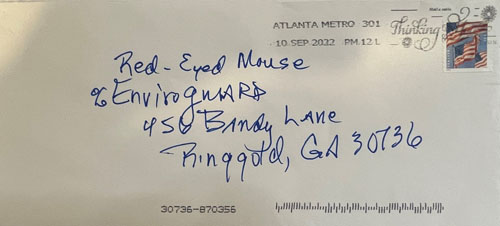 ATLANTA METRO 301
10 SEP 2022 PM 12 L
Thinking
Red-Eyed Mouse
% EnviroguARD
456 Bandy Lane
Ringgold, GA 30736
30736-870356